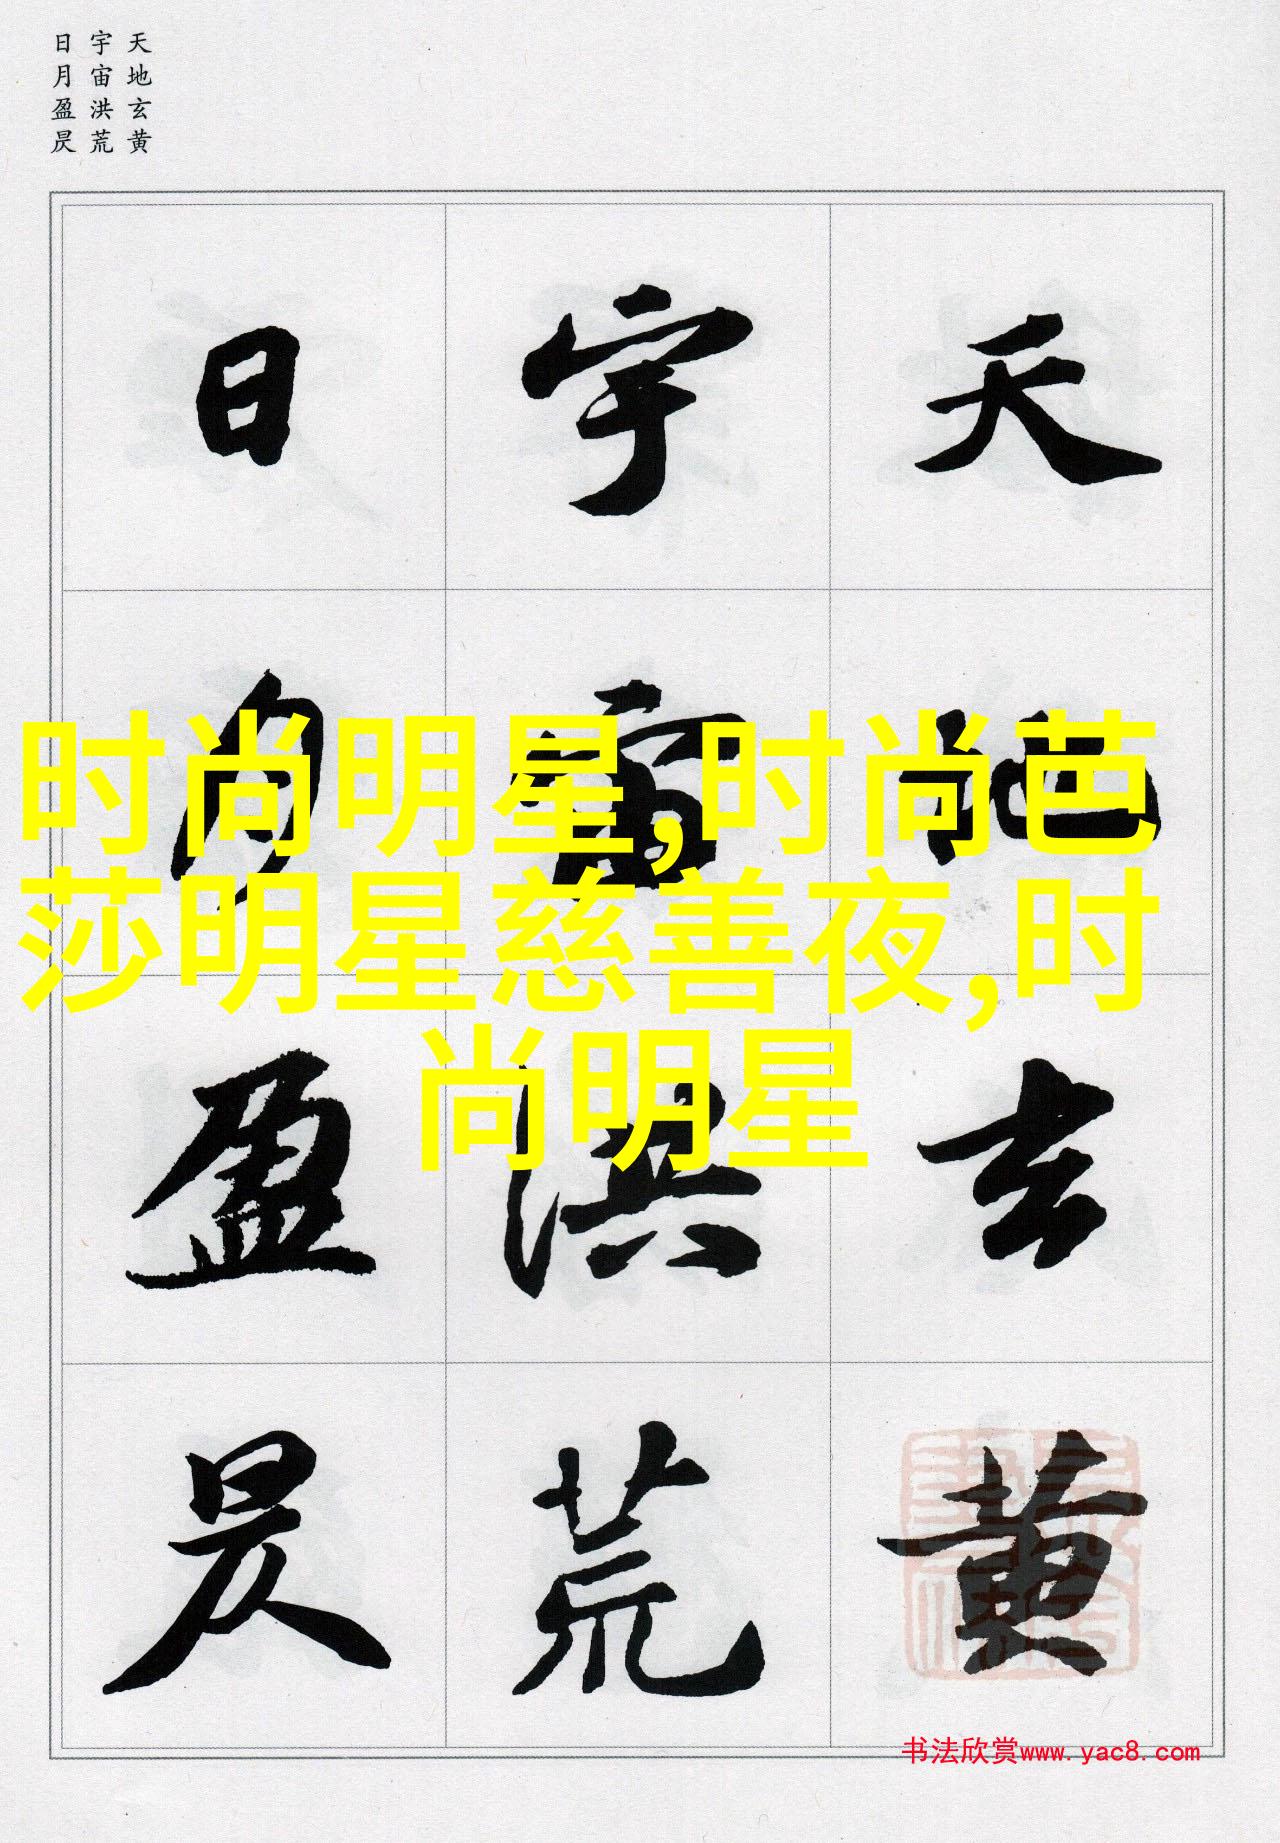 天地玄黄
宇宙洪荒
日月盈昃
天地玄黄
宇宙洪荒
日月盈昃
时尚明星,时尚芭
莎明星慈善夜,时
尚明星
书法欣赏www.yac8.com